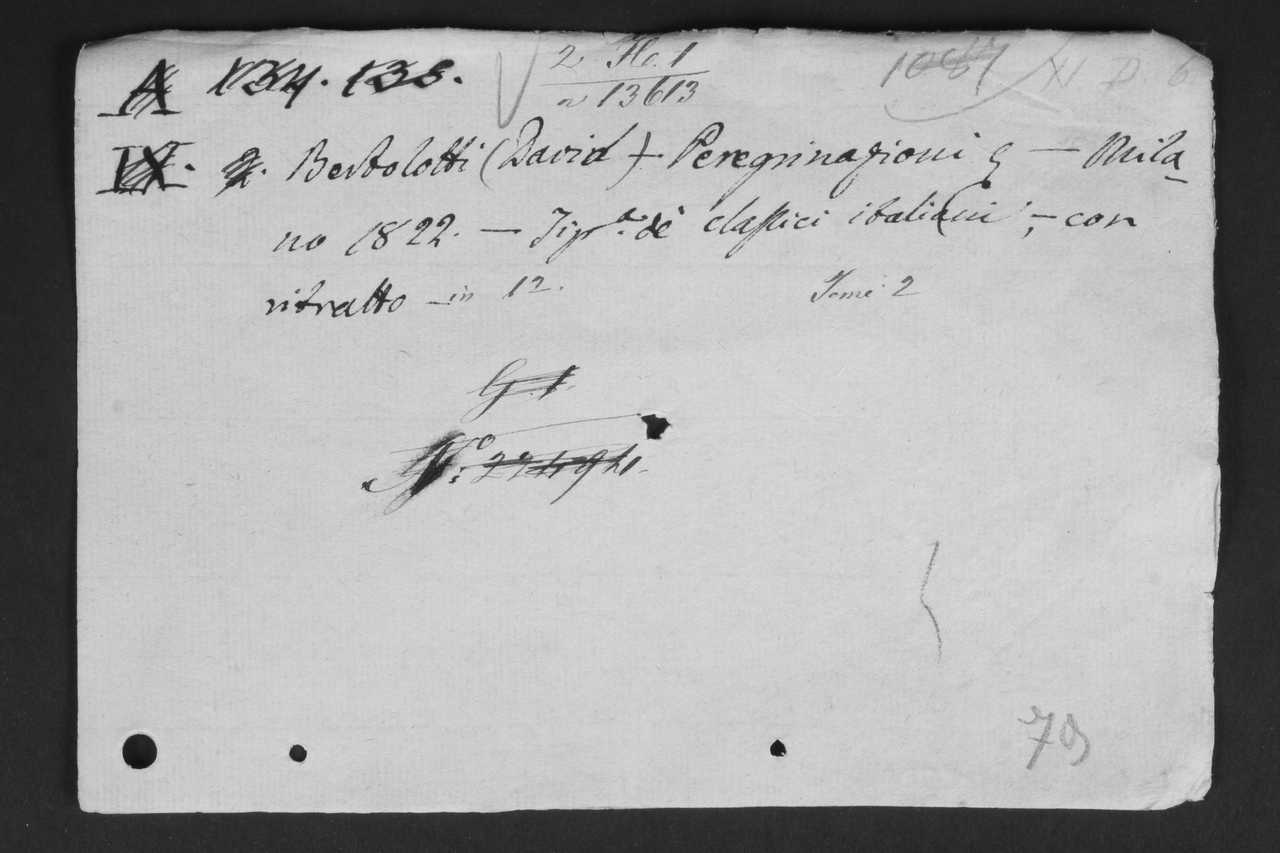 A 134. 138. 2 Ho. 1 1087 XI D. 6
a 13613
IX. 2. Bertolotti (David) Peregrinazioni — Mila-
no 1822. — Tip.a de' classici italiani; — con
ritratto — in 12. Tomi 2
G. 1.
No: 22494.
79